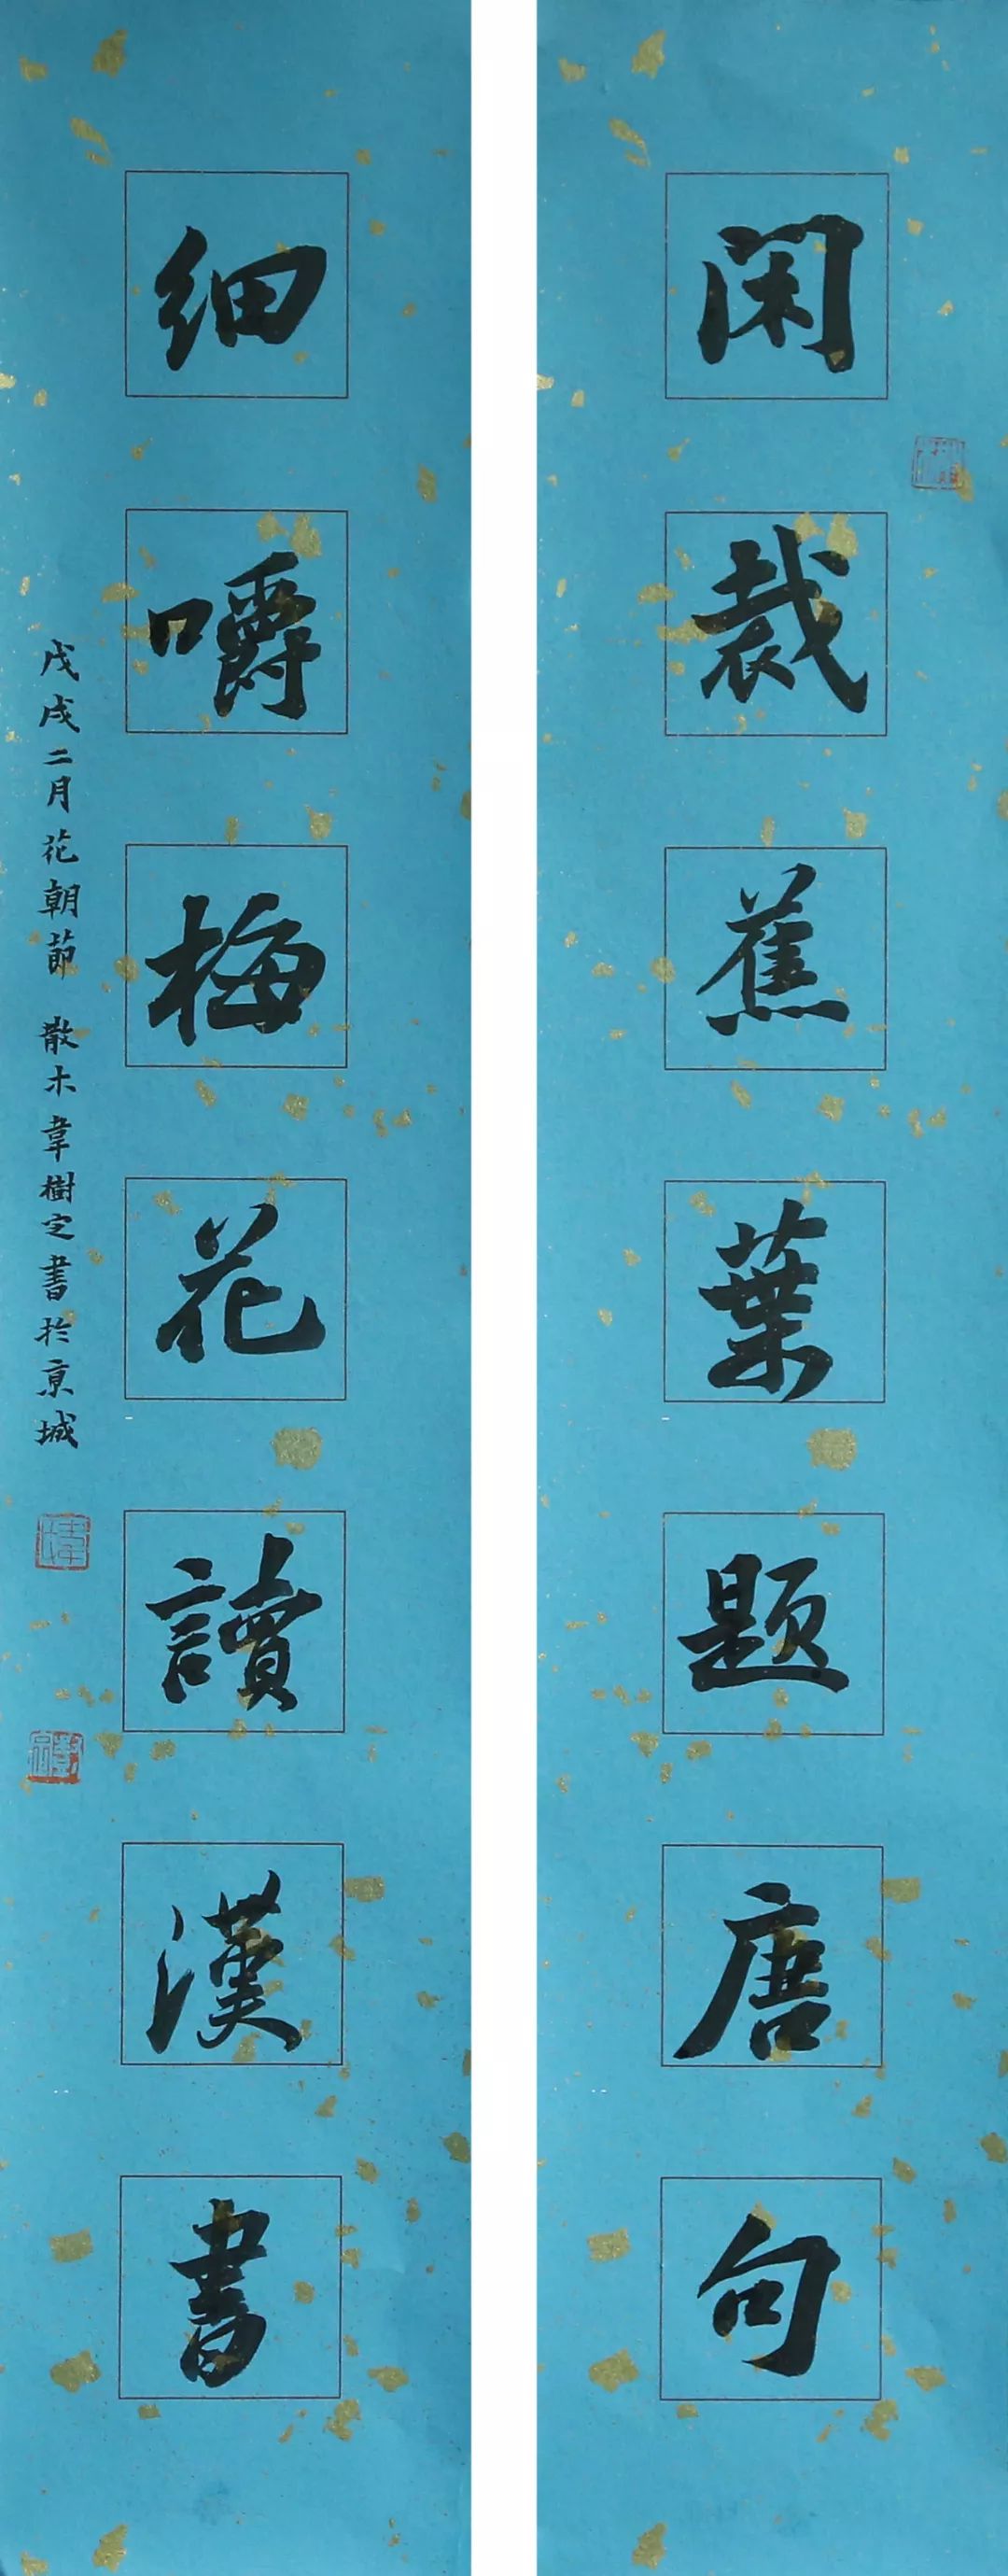 闲裁蕉葉题唐句
细嚼梅花讀漢書
戊戌二月花朝節 散木韋樹定書於京城